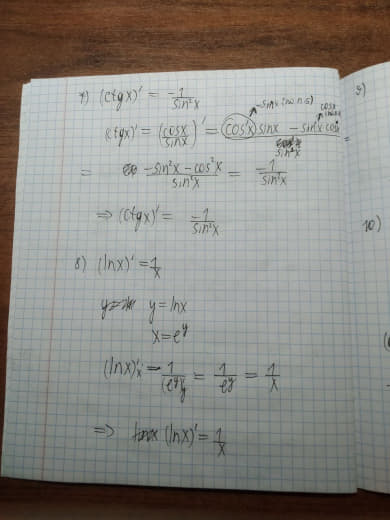 7) (ctgx)' = -1/sin²x
(ctgx)' = (cosx/sinx)' = (cos'x)sinx - sin'x cosx / sin²x
= -sin²x - cos²x / sin²x = -1/sin²x
⇒ (ctgx)' = -1/sin²x
8) (lnx)' = 1/x
y = lnx
x = e^y
(lnx)'x = 1/(e^y)'y = 1/e^y = 1/x
⇒ (lnx)' = 1/x
9)
10)